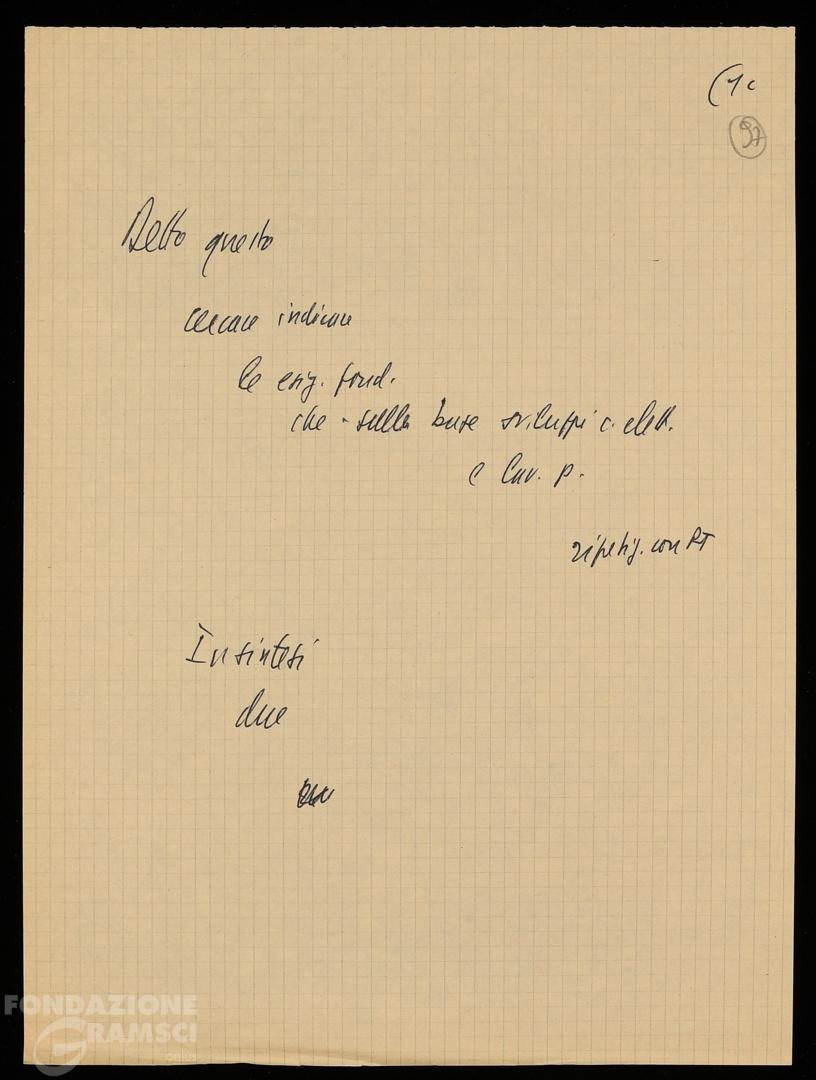 (1c
97
Detto questo
cercare indicare
le esig. fond.
che - sulla base sviluppi c. elett.
e lav. p.
In sintesi
due
FONDAZIONE
GRAMSCI
onlus